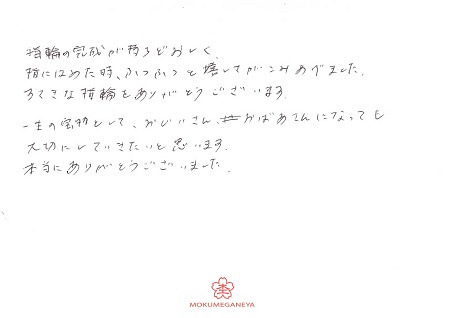 指輪の完成が待ちどおしく、
指にはめた時、ふつふつと嬉しさがこみあげました。
すてきな指輪をありがとうございます。
一生の宝物として、おじいさん、おばあさんになっても
大切にしていきたいと思います。
本当にありがとうございました。
MOKUMEGANEYA